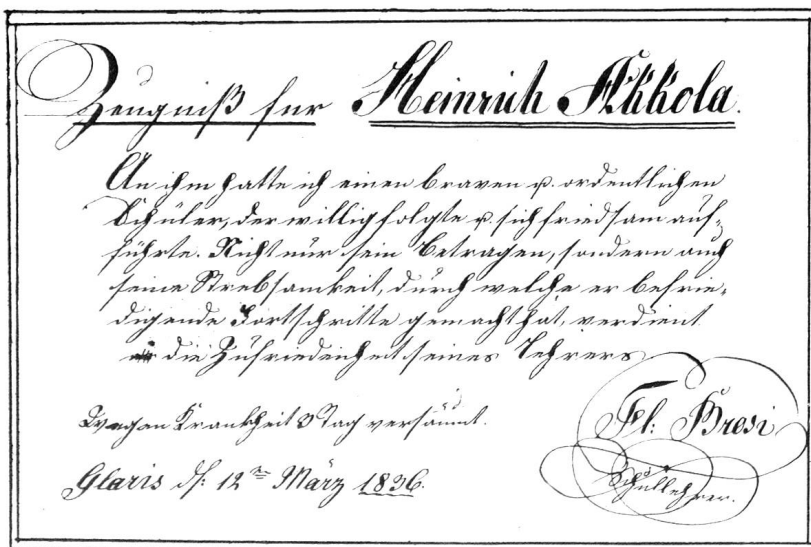 Zeugniß für Heinrich Akkola.
An ihm hatte ich einen braven u. ordentlichen
Schüler, der willig folgte u. sich friedsam auf-
führte. Nicht nur sein Betragen, sondern auch
seine Strebsamkeit, durch welche er befrie-
digende Fortschritte gemacht hat, verdient
die Zufriedenheit seines Lehrers
Wegen Krankheit 3 Tag versäumt.
Fl: Bresi
Schullehrer.
Glaris d: 12ten März 1896.